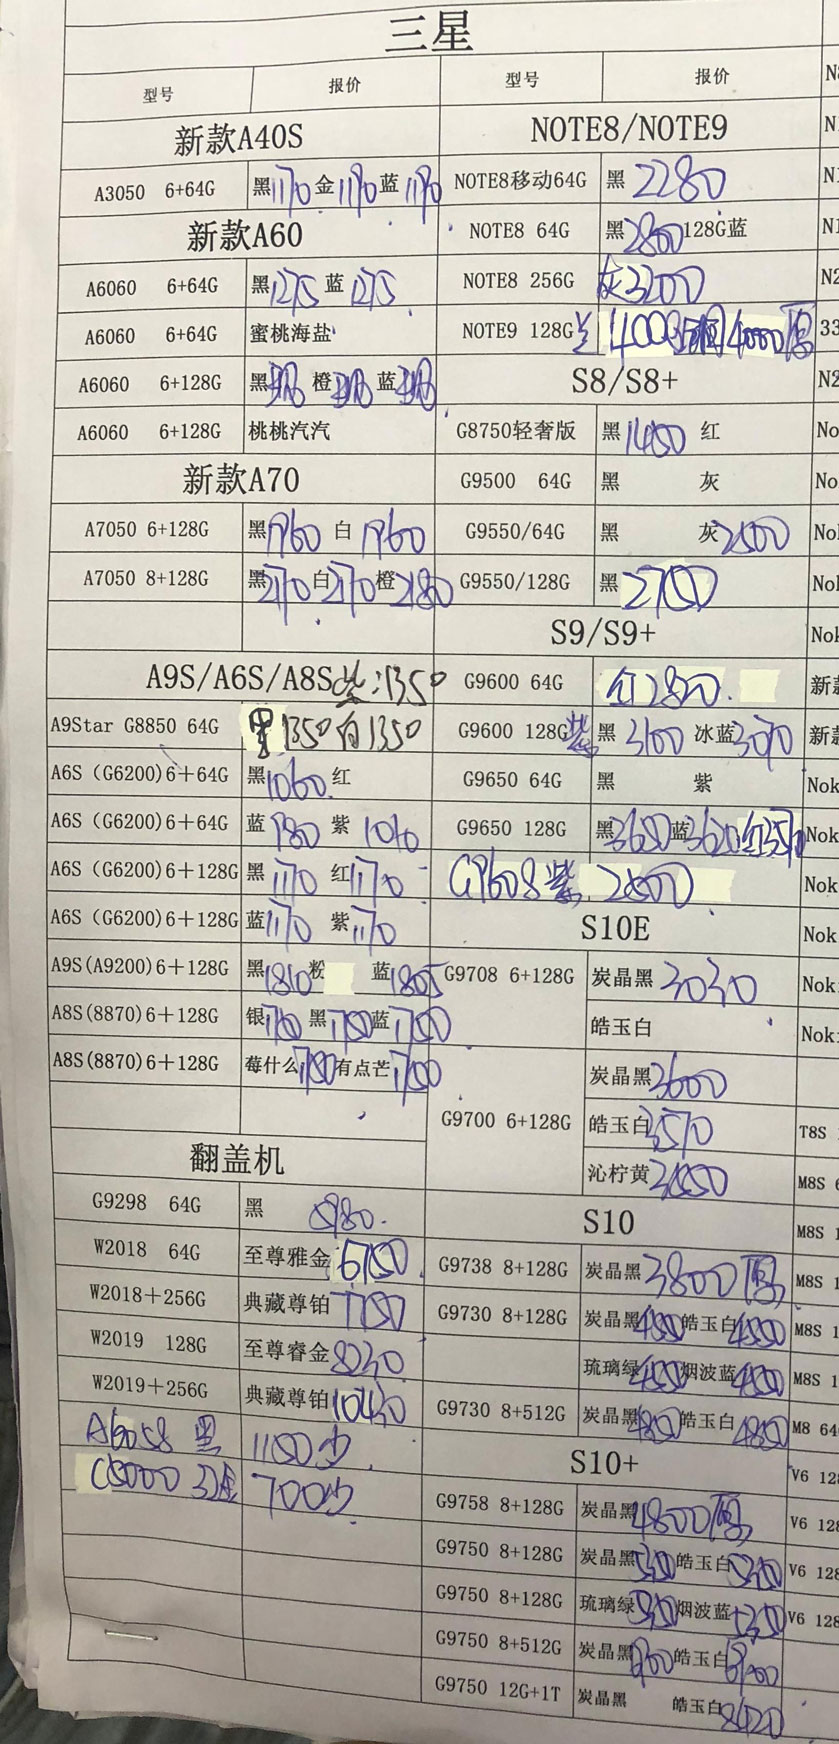 三星
型号 报价 型号 报价
新款A40S NOTE8/NOTE9
A3050 6+64G 黑1170 金1190 蓝1190 NOTE8移动64G 黑 2280
新款A60 NOTE8 64G 黑2800 128G蓝
A6060 6+64G 黑1275 蓝1275 NOTE8 256G 灰3200
A6060 6+64G 蜜桃海盐 NOTE9 128G 4000
A6060 6+128G 黑 橙 蓝 S8/S8+
A6060 6+128G 桃桃汽汽 G8750轻奢版 黑1450 红
新款A70 G9500 64G 黑 灰
A7050 6+128G 黑1960 白1960 G9550/64G 黑 灰2500
A7050 8+128G 黑2170 白2170 橙2180 G9550/128G 黑 2750
S9/S9+
A9S/A6S/A8S 紫:1350 G9600 64G 红2800
A9Star G8850 64G 黑1350 白1350 G9600 128G紫 黑 3100 冰蓝3070
A6S (G6200)6+64G 黑1060 红 G9650 64G 黑 紫
A6S (G6200)6+64G 蓝980 紫 1010 G9650 128G 黑3650 蓝3620 红
A6S (G6200)6+128G 黑 1170 红1170 G9608紫 2800
A6S (G6200)6+128G 蓝1170 紫1170 S10E
A9S(A9200)6+128G 黑1810 粉 蓝1805 G9708 6+128G 炭晶黑 3030
A8S(8870)6+128G 银1750 黑1750 蓝1750 皓玉白
A8S(8870)6+128G 莓什么1750 有点芒1750 炭晶黑3600
G9700 6+128G 皓玉白3570
翻盖机 沁柠黄3550
G9298 64G 黑 5980 S10
W2018 64G 至尊雅金6750 G9738 8+128G 炭晶黑3800
W2018+256G 典藏尊铂7750 G9730 8+128G 炭晶黑4550 皓玉白4550
W2019 128G 至尊睿金8230 琉璃绿4550 烟波蓝4550
W2019+256G 典藏尊铂10430 G9730 8+512G 炭晶黑4850 皓玉白4850
A6058 黑 1150少 S10+
C5000 700少 G9758 8+128G 炭晶黑4800
G9750 8+128G 炭晶黑 皓玉白
G9750 8+128G 琉璃绿 烟波蓝
G9750 8+512G 炭晶黑 皓玉白
G9750 12G+1T 炭晶黑 皓玉白8420